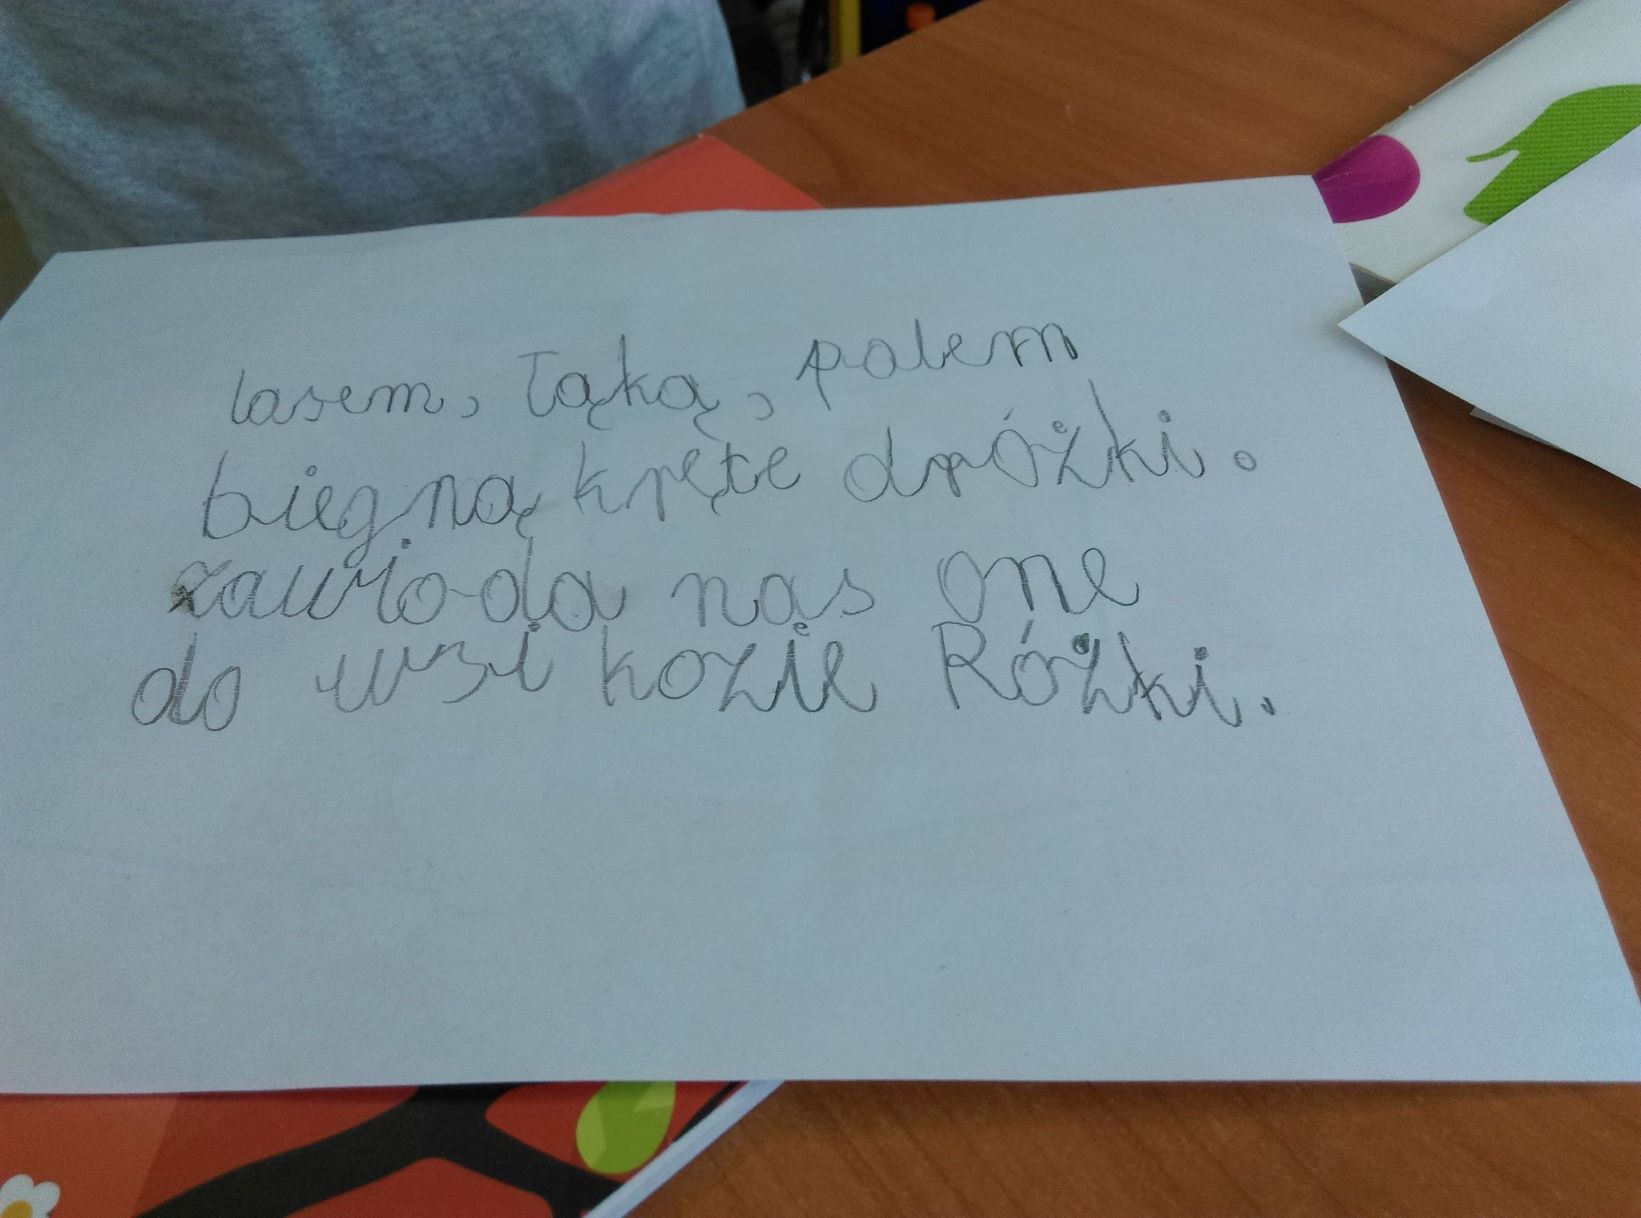 lasem, łąką, polem
biegną kręte dróżki.
zawioda nas one
do wsi kozie Różki.